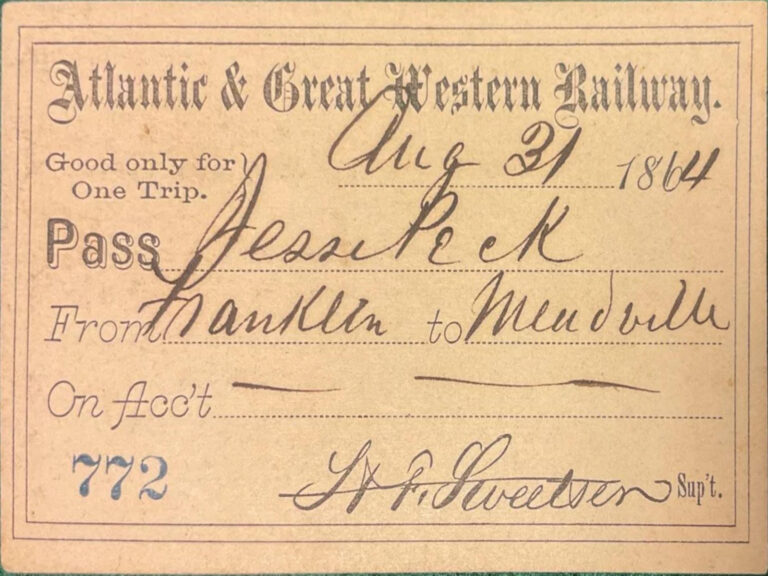 Atlantic & Great Western Railway.
Good only for One Trip. Aug 31 1864
Pass Jesse Peck
From Franklin to Meadville
On Acc't — —
772 H. F. Sweetser Sup't.